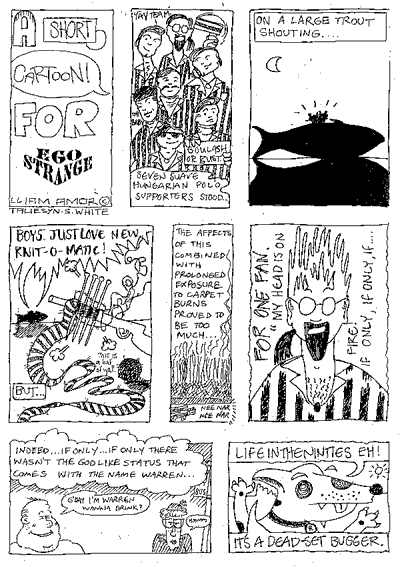 A SHORT
CARTOON!
FOR
EGO
STRANGE
LLIAM AMOR ©
TALIESYN.S.WHITE
YAY TEAM
GOULASH
OR BUST.
SEVEN SUAVE
HUNGARIAN POLO
SUPPORTERS STOOD..
ON A LARGE TROUT
SHOUTING....
BOYS. JUST LOVE NEW
KNIT-O-MATIC!
This is
a ball
BUT..
THE AFFECTS
OF THIS
COMBINED
WITH
PROLONGED
EXPOSURE
TO CARPET
BURNS
PROVED TO
BE TOO
MUCH...
NEE NAR
NEE NAR
FOR ONE FAN.
"MY HEAD IS ON
FIRE.
IF ONLY, IF ONLY, IF....
INDEED...IF ONLY...IF ONLY THERE
WASN'T THE GODLIKE STATUS THAT
COMES WITH THE NAME WARREN...
G'DAY I'M WARREN
WANNA DRINK?
LIFEINTHENINTIES EH!
IT'S A DEAD-SET BUGGER.